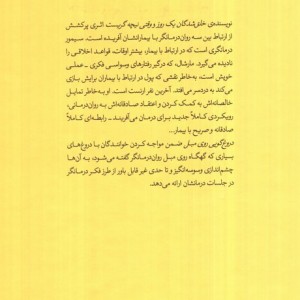 نویسنده‌ی خلق‌شدگان یک روز و وقتی نیچه گریست اثری پرکشش
از ارتباط بین سه روان‌درمانگر با بیمارانشان آفریده است. سیمور
درمانگری است که در ارتباط با بیمار، بیشتر اوقات، قواعد اخلاقی را
نادیده می‌گیرد. مارشال، که درگیر رفتارهای وسواسی فکری ـ عملی
خویش است، به‌خاطر نقشی که پول در ارتباط با بیماران برایش بازی
می‌کند به دردسر می‌افتد. آخرین نفر ارنست است. او به‌خاطر تمایل
خالصانه‌اش به کمک کردن و اعتقاد صادقانه‌اش به روان‌درمانی،
رویکردی کاملاً جدید برای درمان می‌آفریند ـ رابطه‌ای کاملاً
صادقانه و صریح با بیمار...
دروغگویی روی مبل ضمن مواجه کردن خوانندگان با دروغ‌های
بسیاری که گهگاه روی مبل روان‌درمانگر گفته می‌شود، به آن‌ها
چشم‌اندازی وسوسه‌انگیز و تا حدی غیر قابل باور از طرز فکر درمانگر
در جلسات درمانشان ارائه می‌دهد.